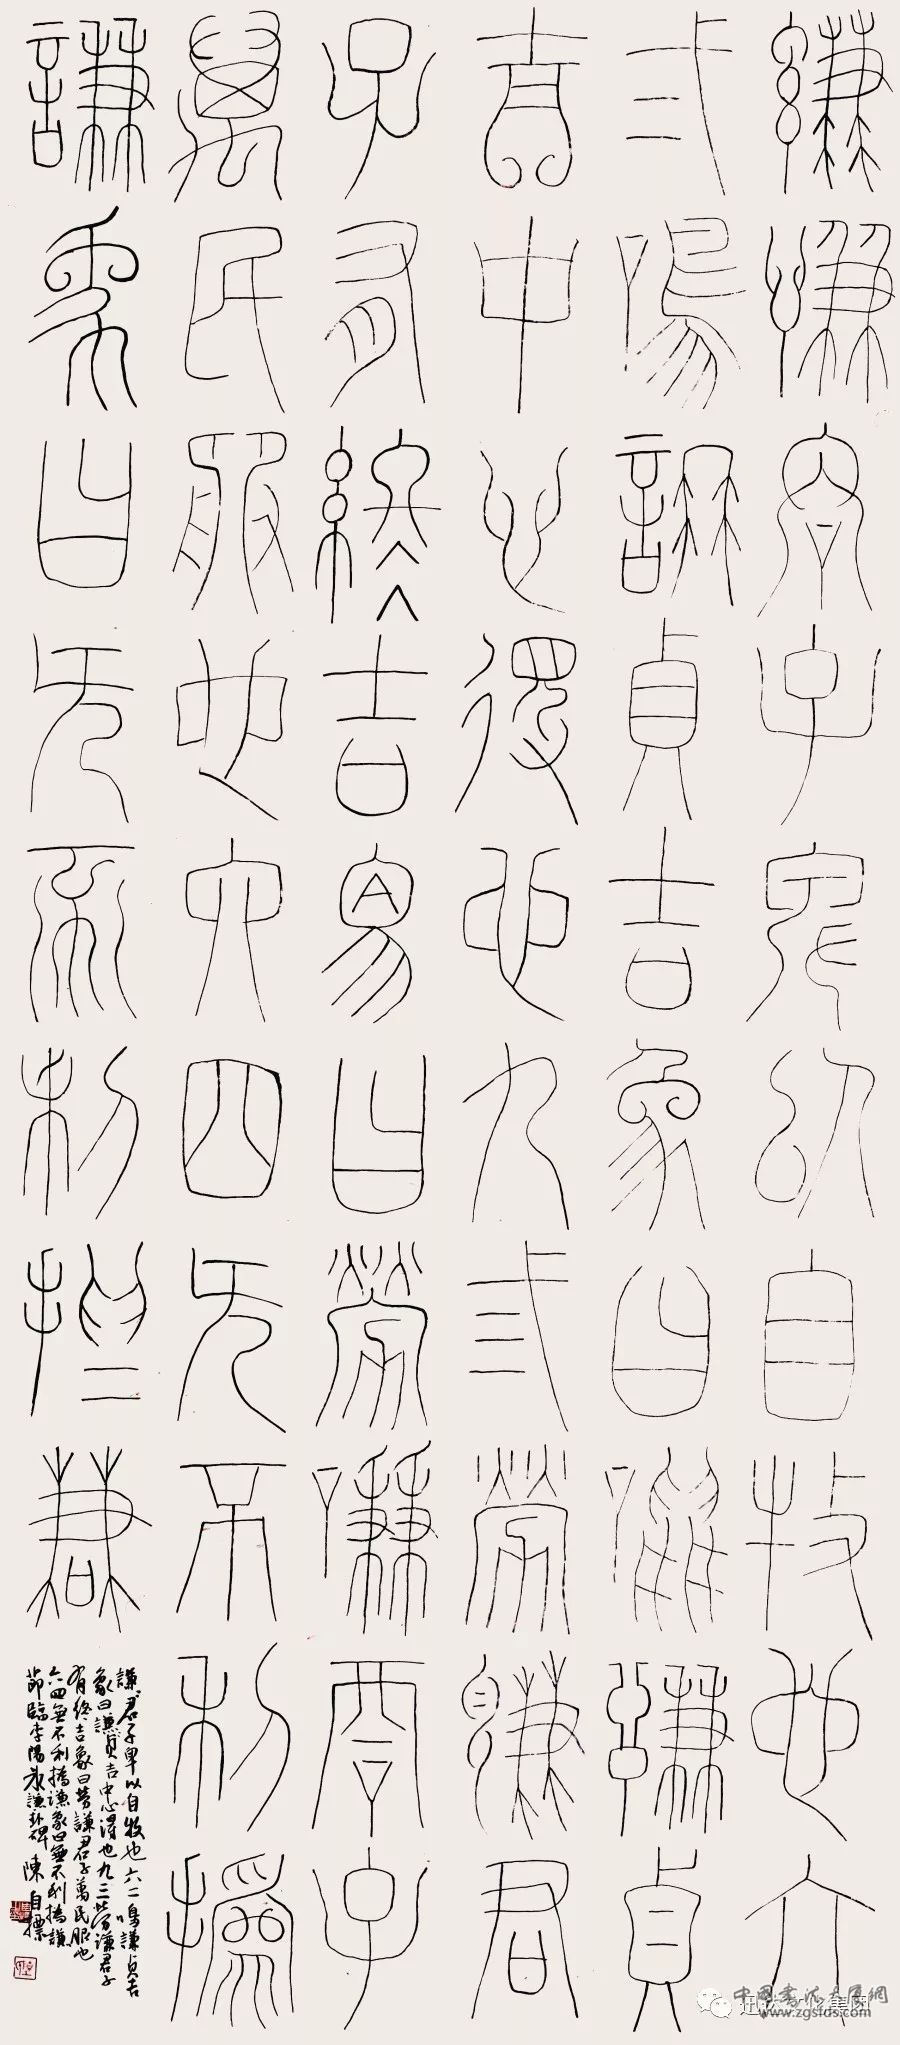 謙謙君子卑以自牧也六
弍鳴謙貞吉象曰鳴謙貞
吉中心得也九弎勞謙君
子有終吉象曰勞謙君子
萬民服也六四无不利撝
謙象曰无不利撝謙
謙君子卑以自牧也六二鳴謙貞吉
象曰謙貞吉中心得也九三勞謙君子
有終吉象曰勞謙君子萬民服也
六四無不利撝謙象曰無不利撝謙
節臨李陽冰謙卦碑 陳自標
www.zgsfds.com